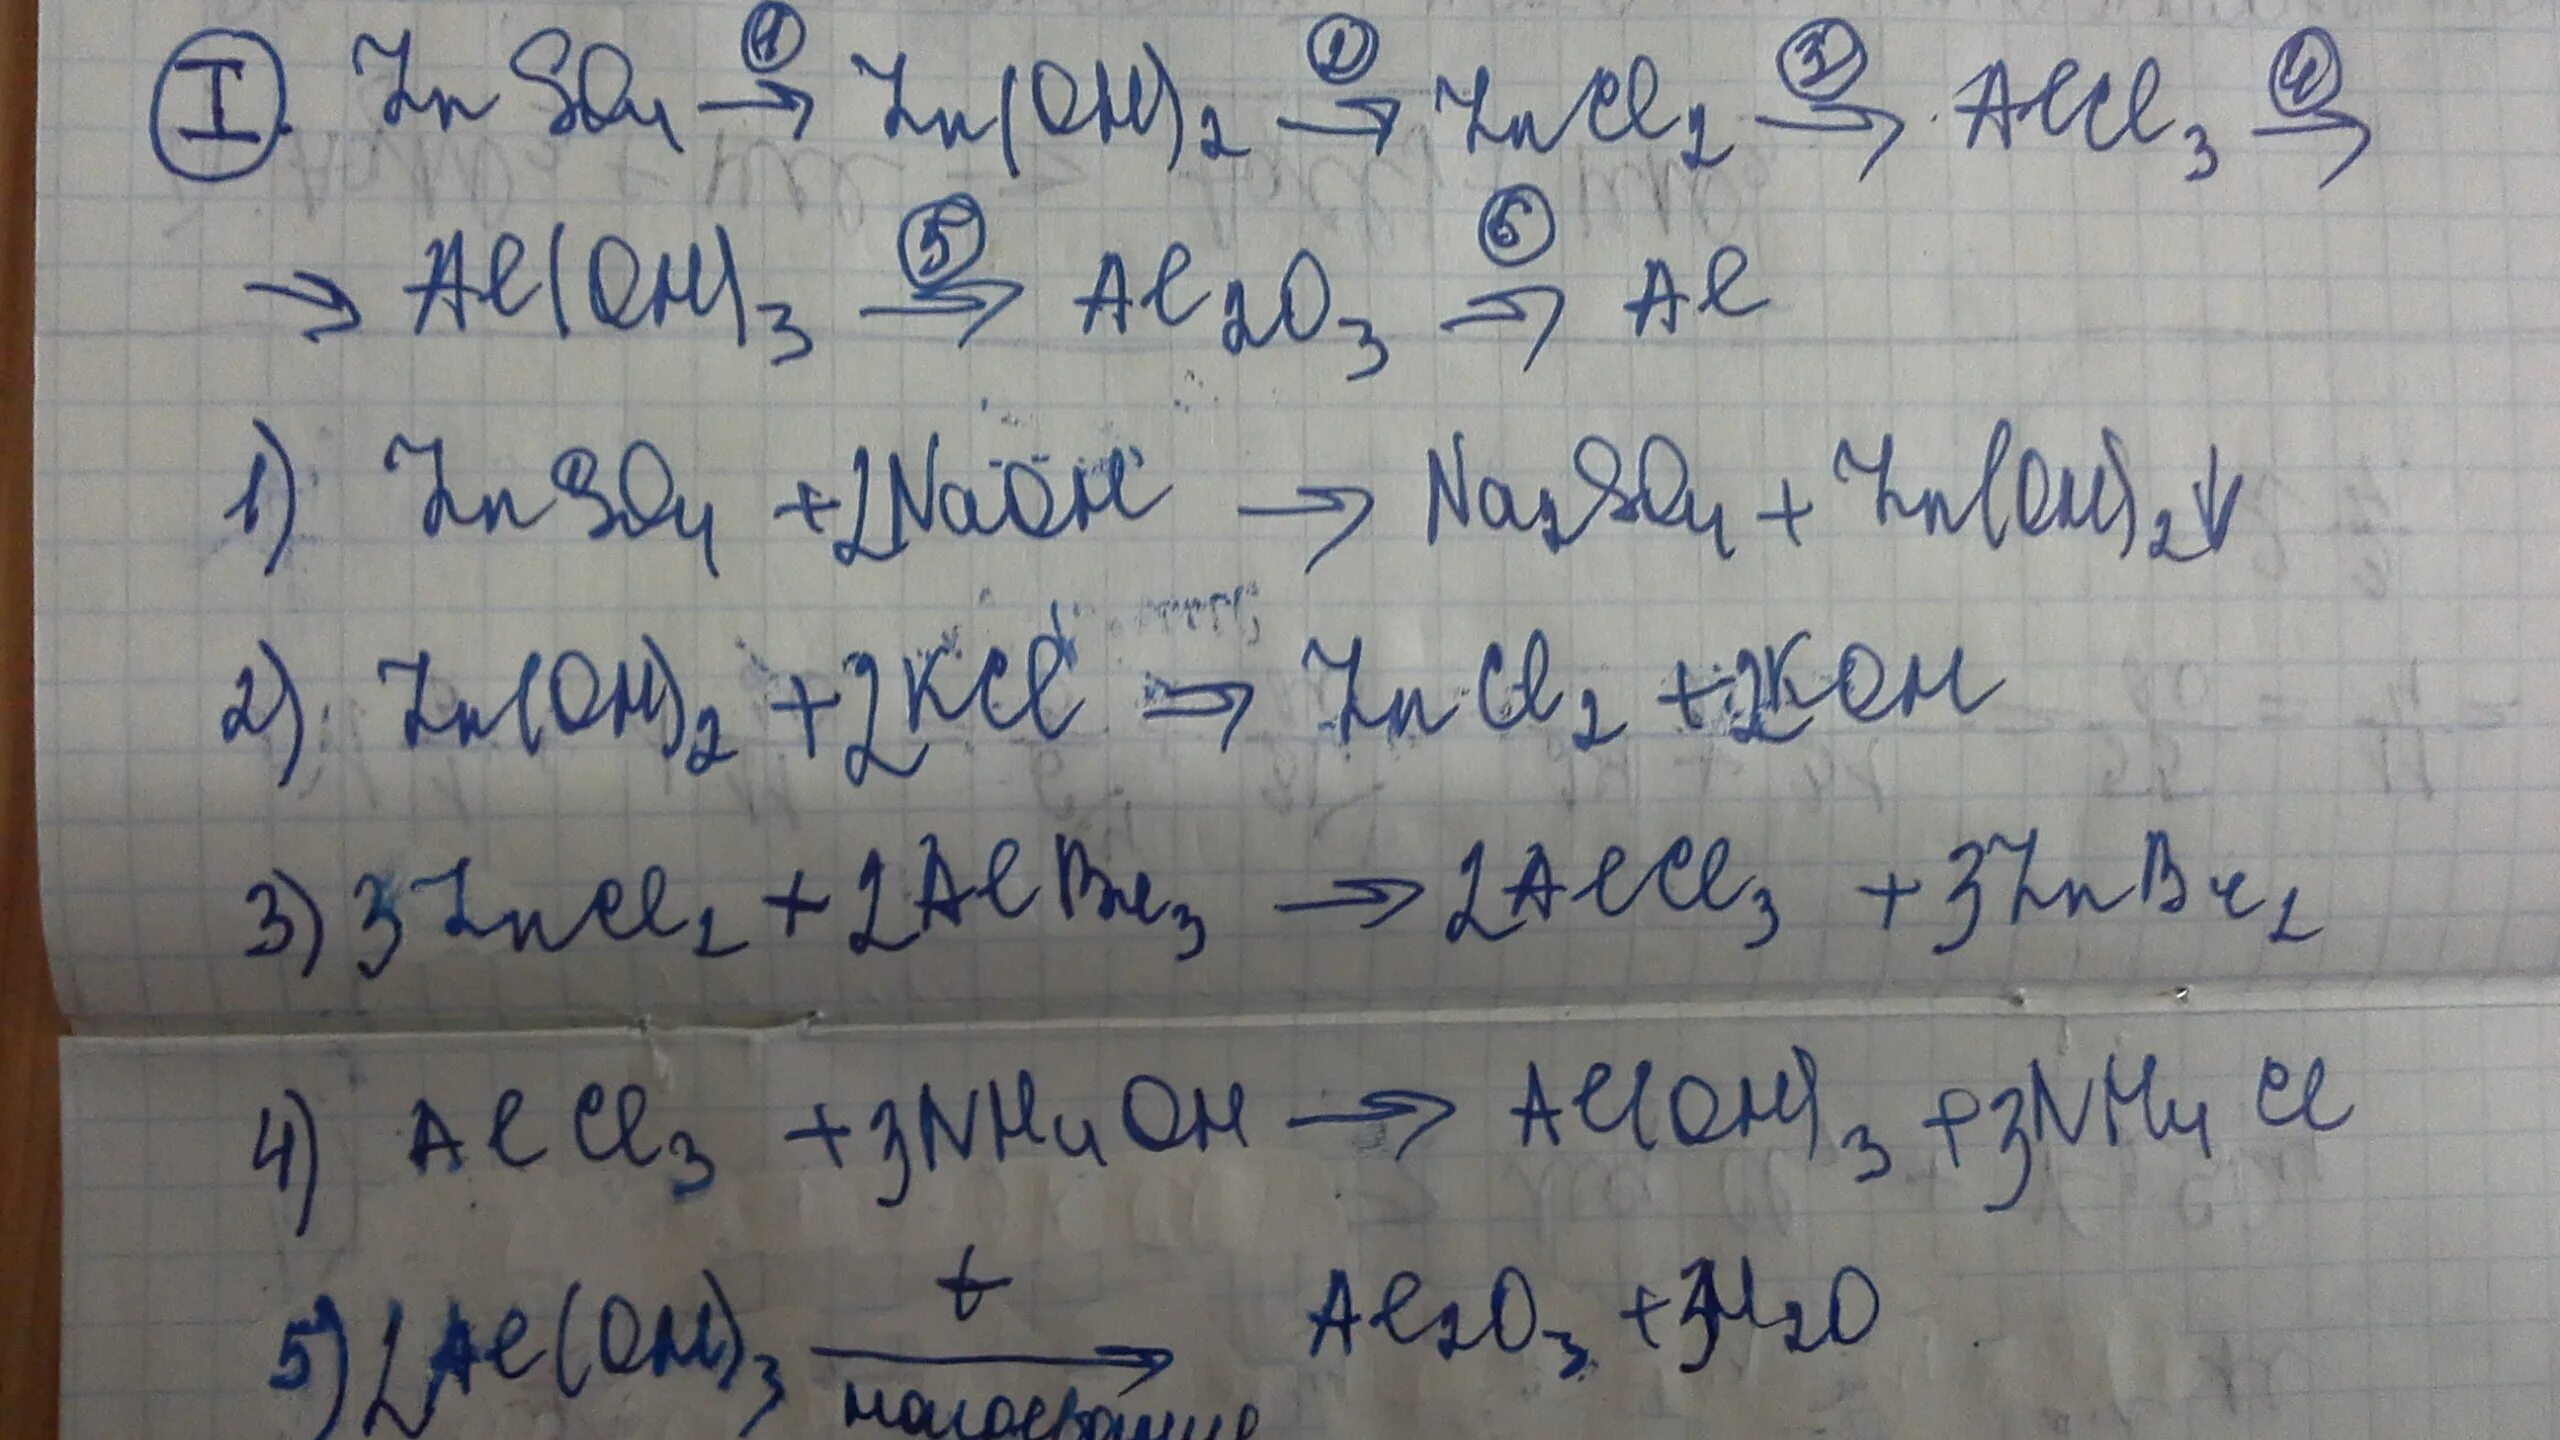 I. ZnSO4 →① Zn(OH)2 →② ZnCl2 →③ AlCl3 →④
→ Al(OH)3 →⑤ Al2O3 →⑥ Al
1) ZnSO4 + 2NaOH → Na2SO4 + Zn(OH)2↓
2) Zn(OH)2 + 2KCl → ZnCl2 + 2KOH
3) 3ZnCl2 + 2AlBr3 → 2AlCl3 + 3ZnBr2
4) AlCl3 + 3NH4OH → Al(OH)3 + 3NH4Cl
t
5) 2Al(OH)3 → Al2O3 + 3H2O